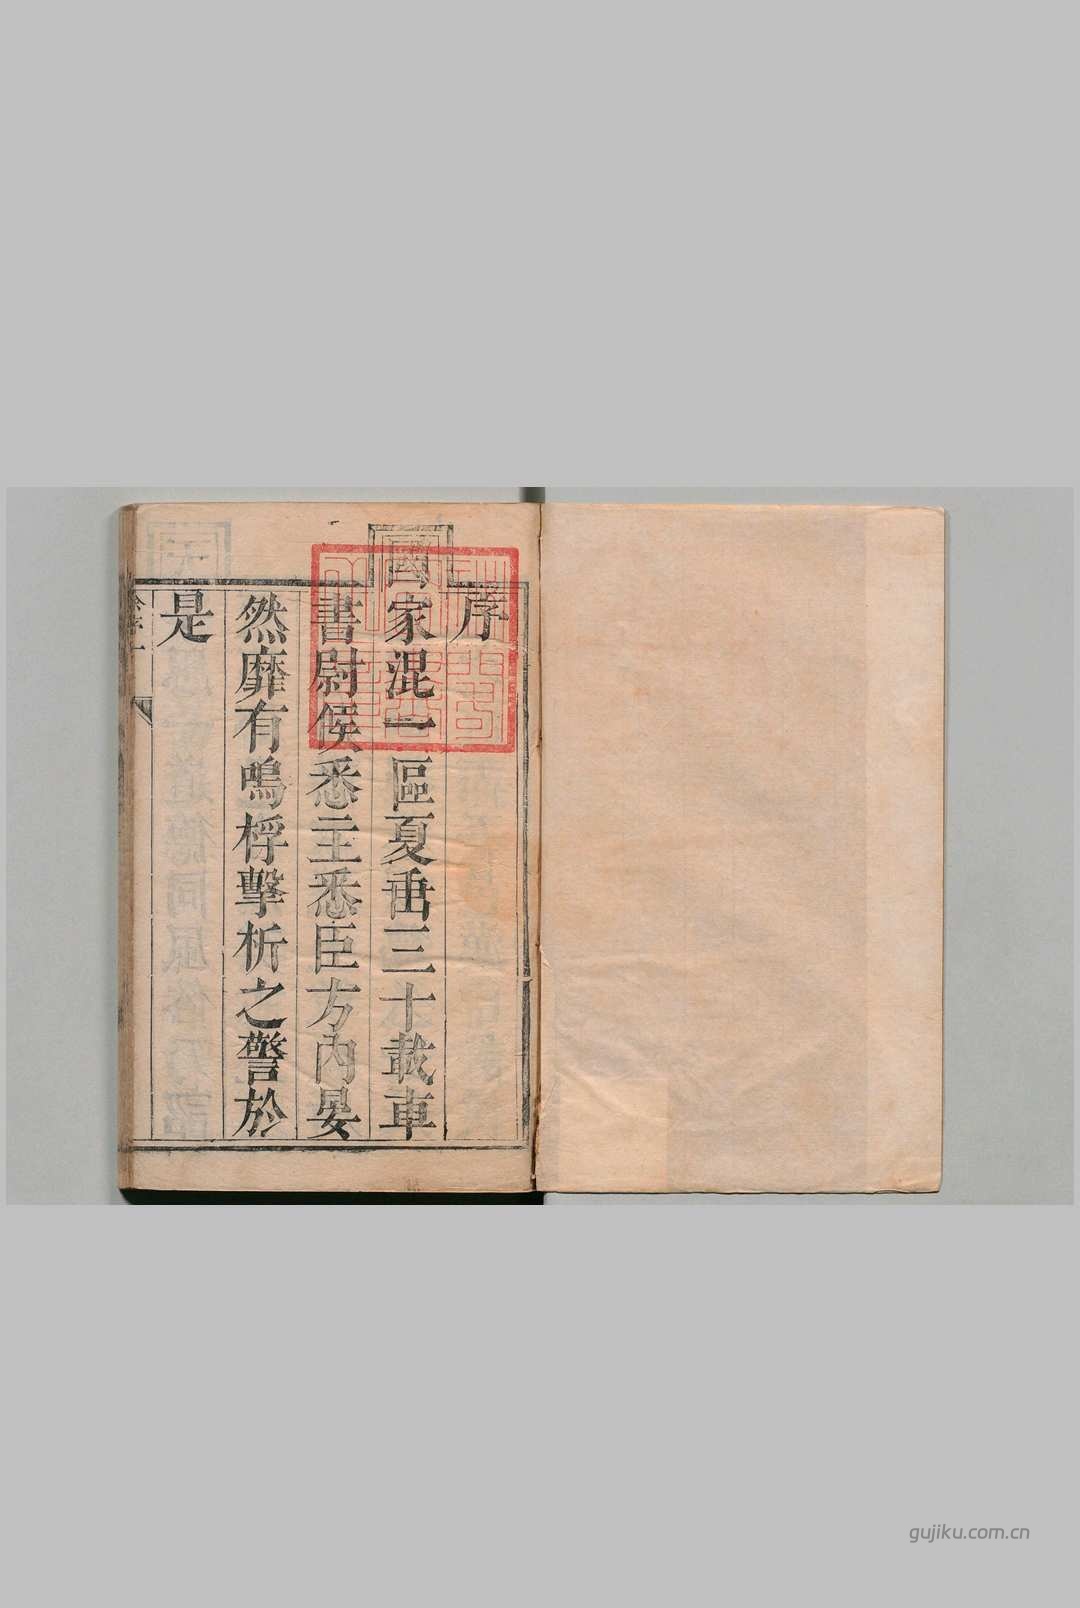 序
國家混一區夏垂三十載車
書尉候悉主悉臣方內晏
然靡有鳴桴擊柝之警於
是
gujiku.com.cn